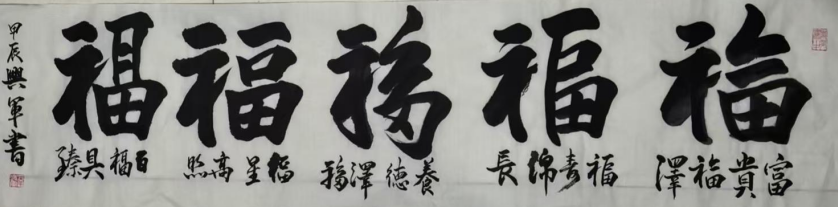 福福福福福
富貴福澤
福寿綿長
養德澤福
福星高照
百福具臻
甲辰興軍書